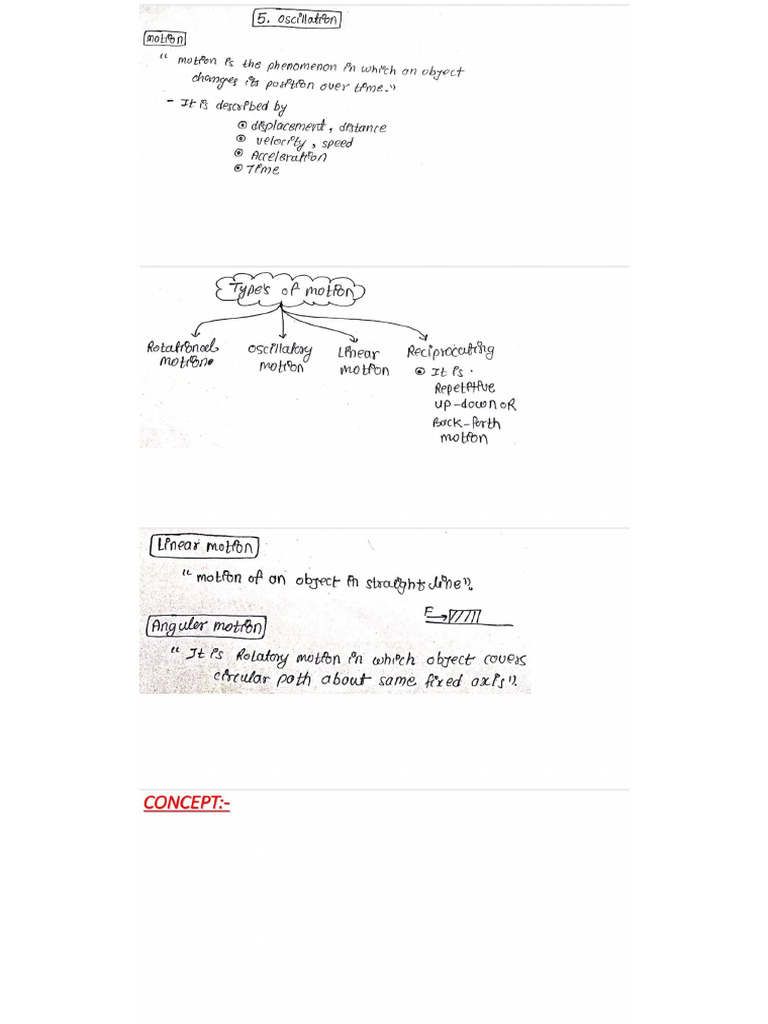 5. Oscillation
Motion
" Motion is the phenomenon in which an object
changes its position over time."
- It is described by
displacement, distance
velocity, speed
Acceleration
Time
Type's of motion
Rotational
motion
Oscillatory
motion
Linear
motion
Reciprocating
It is
Repetitive
up-down OR
Back-forth
motion
Linear motion
" motion of an object in straight line".
F
Anguler motion
" It is Rotatory motion in which object covers
circular path about same fixed axis".
CONCEPT:-